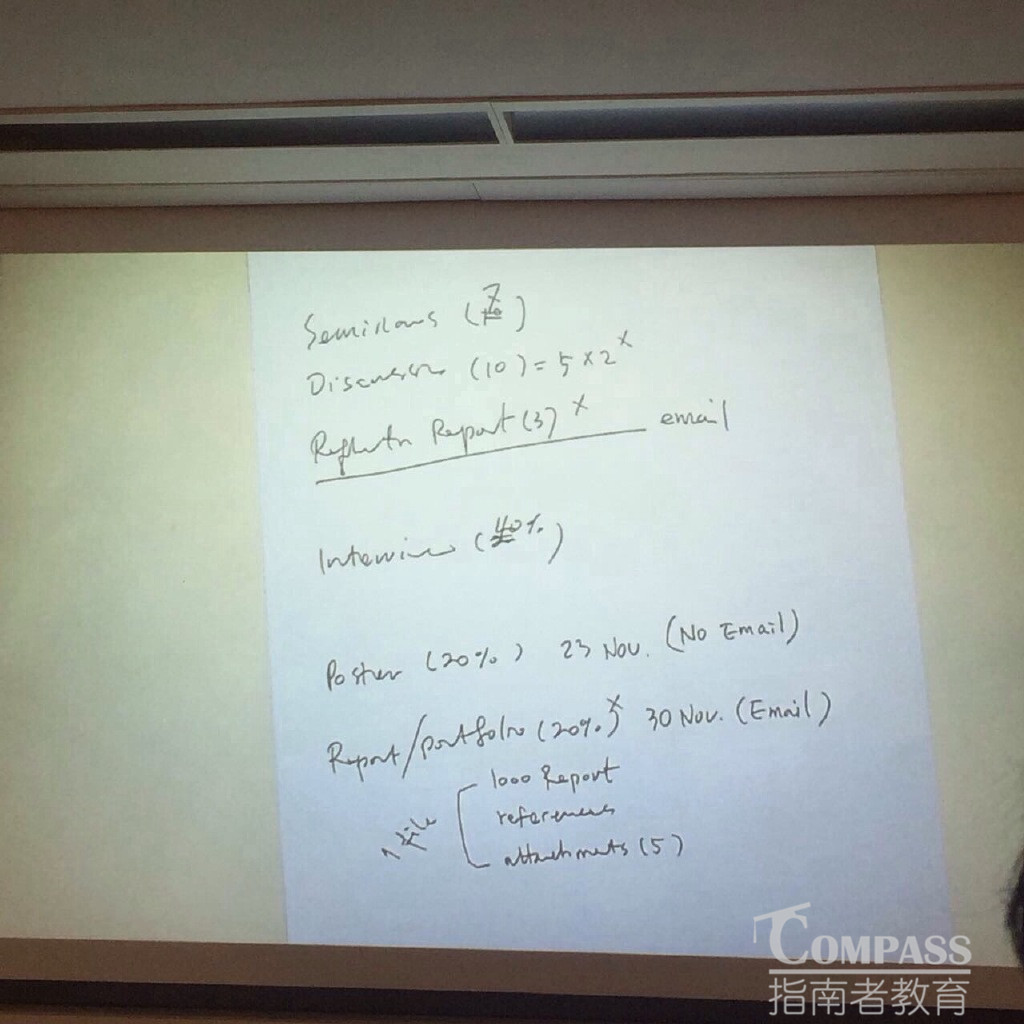 Seminars (7)
Discussion (10) = 5 x 2 x
Reflectn Report (3) x email
Interview (40%)
Poster (20%) 23 Nov. (No Email)
Report/portfolio (20%) x 30 Nov. (Email)
1 file
1000 Report
references
attachments (5)
COMPASS
指南者教育